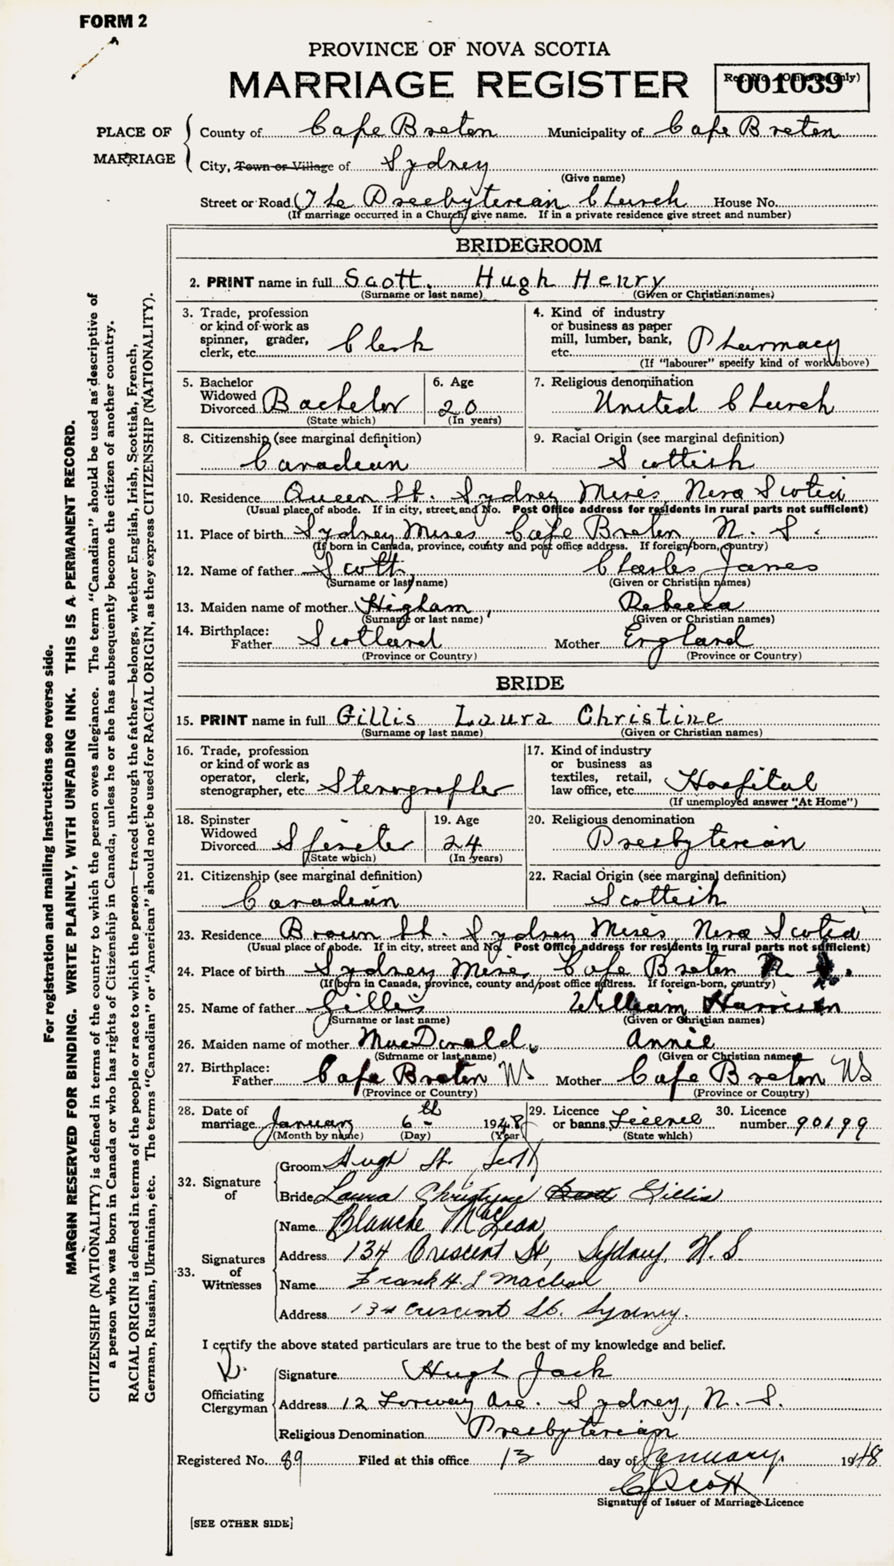 FORM 2
PROVINCE OF NOVA SCOTIA
MARRIAGE REGISTER
001039
PLACE OF MARRIAGE
County of Cape Breton Municipality of Cape Breton
City, Town or Village of Sydney
(Give name)
Street or Road The Presbyterian Church House No.
(If marriage occurred in a Church give name. If in a private residence give street and number)
BRIDEGROOM
2. PRINT name in full Scott, Hugh Henry
(Surname or last name) (Given or Christian names)
3. Trade, profession or kind of work as spinner, grader, clerk, etc. Clerk
4. Kind of industry or business as paper mill, lumber, bank, etc. Pharmacy
(If "labourer" specify kind of work above)
5. Bachelor Widowed Divorced Bachelor
(State which)
6. Age 20
(In years)
7. Religious denomination
United Church
8. Citizenship (see marginal definition)
Canadian
9. Racial Origin (see marginal definition)
Scottish
10. Residence Queen St. Sydney Mines Nova Scotia
(Usual place of abode. If in city, street and No. Post Office address for residents in rural parts not sufficient)
11. Place of birth Sydney Mines Cape Breton N. S.
(If born in Canada, province, county and post office address. If foreign-born, country)
12. Name of father Scott, Charles James
(Surname or last name) (Given or Christian names)
13. Maiden name of mother Higham, Rebecca
(Surname or last name) (Given or Christian names)
14. Birthplace:
Father Scotland Mother England
(Province or Country) (Province or Country)
BRIDE
15. PRINT name in full Gillis Laura Christine
(Surname or last name) (Given or Christian names)
16. Trade, profession or kind of work as operator, clerk, stenographer, etc. Stenographer
17. Kind of industry or business as textiles, retail, law office, etc. Hospital
(If unemployed answer "At Home")
18. Spinster Widowed Divorced Spinster
(State which)
19. Age 24
(In years)
20. Religious denomination
Presbyterian
21. Citizenship (see marginal definition)
Canadian
22. Racial Origin (see marginal definition)
Scottish
23. Residence Brown St. Sydney Mines Nova Scotia
(Usual place of abode. If in city, street and No. Post Office address for residents in rural parts not sufficient)
24. Place of birth Sydney Mines Cape Breton N.
(If born in Canada, province, county and post office address. If foreign-born, country)
25. Name of father Gillis William Harrison
(Surname or last name) (Given or Christian names)
26. Maiden name of mother MacDonald, Annie
(Surname or last name) (Given or Christian names)
27. Birthplace:
Father Cape Breton NS Mother Cape Breton NS
(Province or Country) (Province or Country)
28. Date of marriage January 6th 1948
(Month by name) (Day) (Year)
29. Licence or banns Licence
(State which)
30. Licence number 90199
32. Signature of
Groom Hugh H. Scott
Bride Laura Christyne Gillis
33. Signatures of Witnesses
Name Blanche MacLean
Address 134 Crescent St, Sydney, N.S
Name Frank H. L MacLean
Address 134 Crescent St. Sydney.
I certify the above stated particulars are true to the best of my knowledge and belief.
Officiating Clergyman
Signature Hugh Jack
Address 12 Ave. Sydney, N. S.
Religious Denomination Presbyterian
Registered No. 89 Filed at this office 13 day of January 1948
Scott
Signature of Issuer of Marriage Licence
[SEE OTHER SIDE]
For registration and mailing instructions see reverse side.
MARGIN RESERVED FOR BINDING. WRITE PLAINLY, WITH UNFADING INK. THIS IS A PERMANENT RECORD.
CITIZENSHIP (NATIONALITY) is defined in terms of the country to which the person owes allegiance. The term "Canadian" should be used as descriptive of
a person who was born in Canada or who has rights of Citizenship in Canada, unless he or she has subsequently become the citizen of another country.
RACIAL ORIGIN is defined in terms of the people or race to which the person—traced through the father—belongs, whether English, Irish, Scottish, French,
German, Russian, Ukrainian, etc. The terms "Canadian" or "American" should not be used for RACIAL ORIGIN, as they express CITIZENSHIP (NATIONALITY).